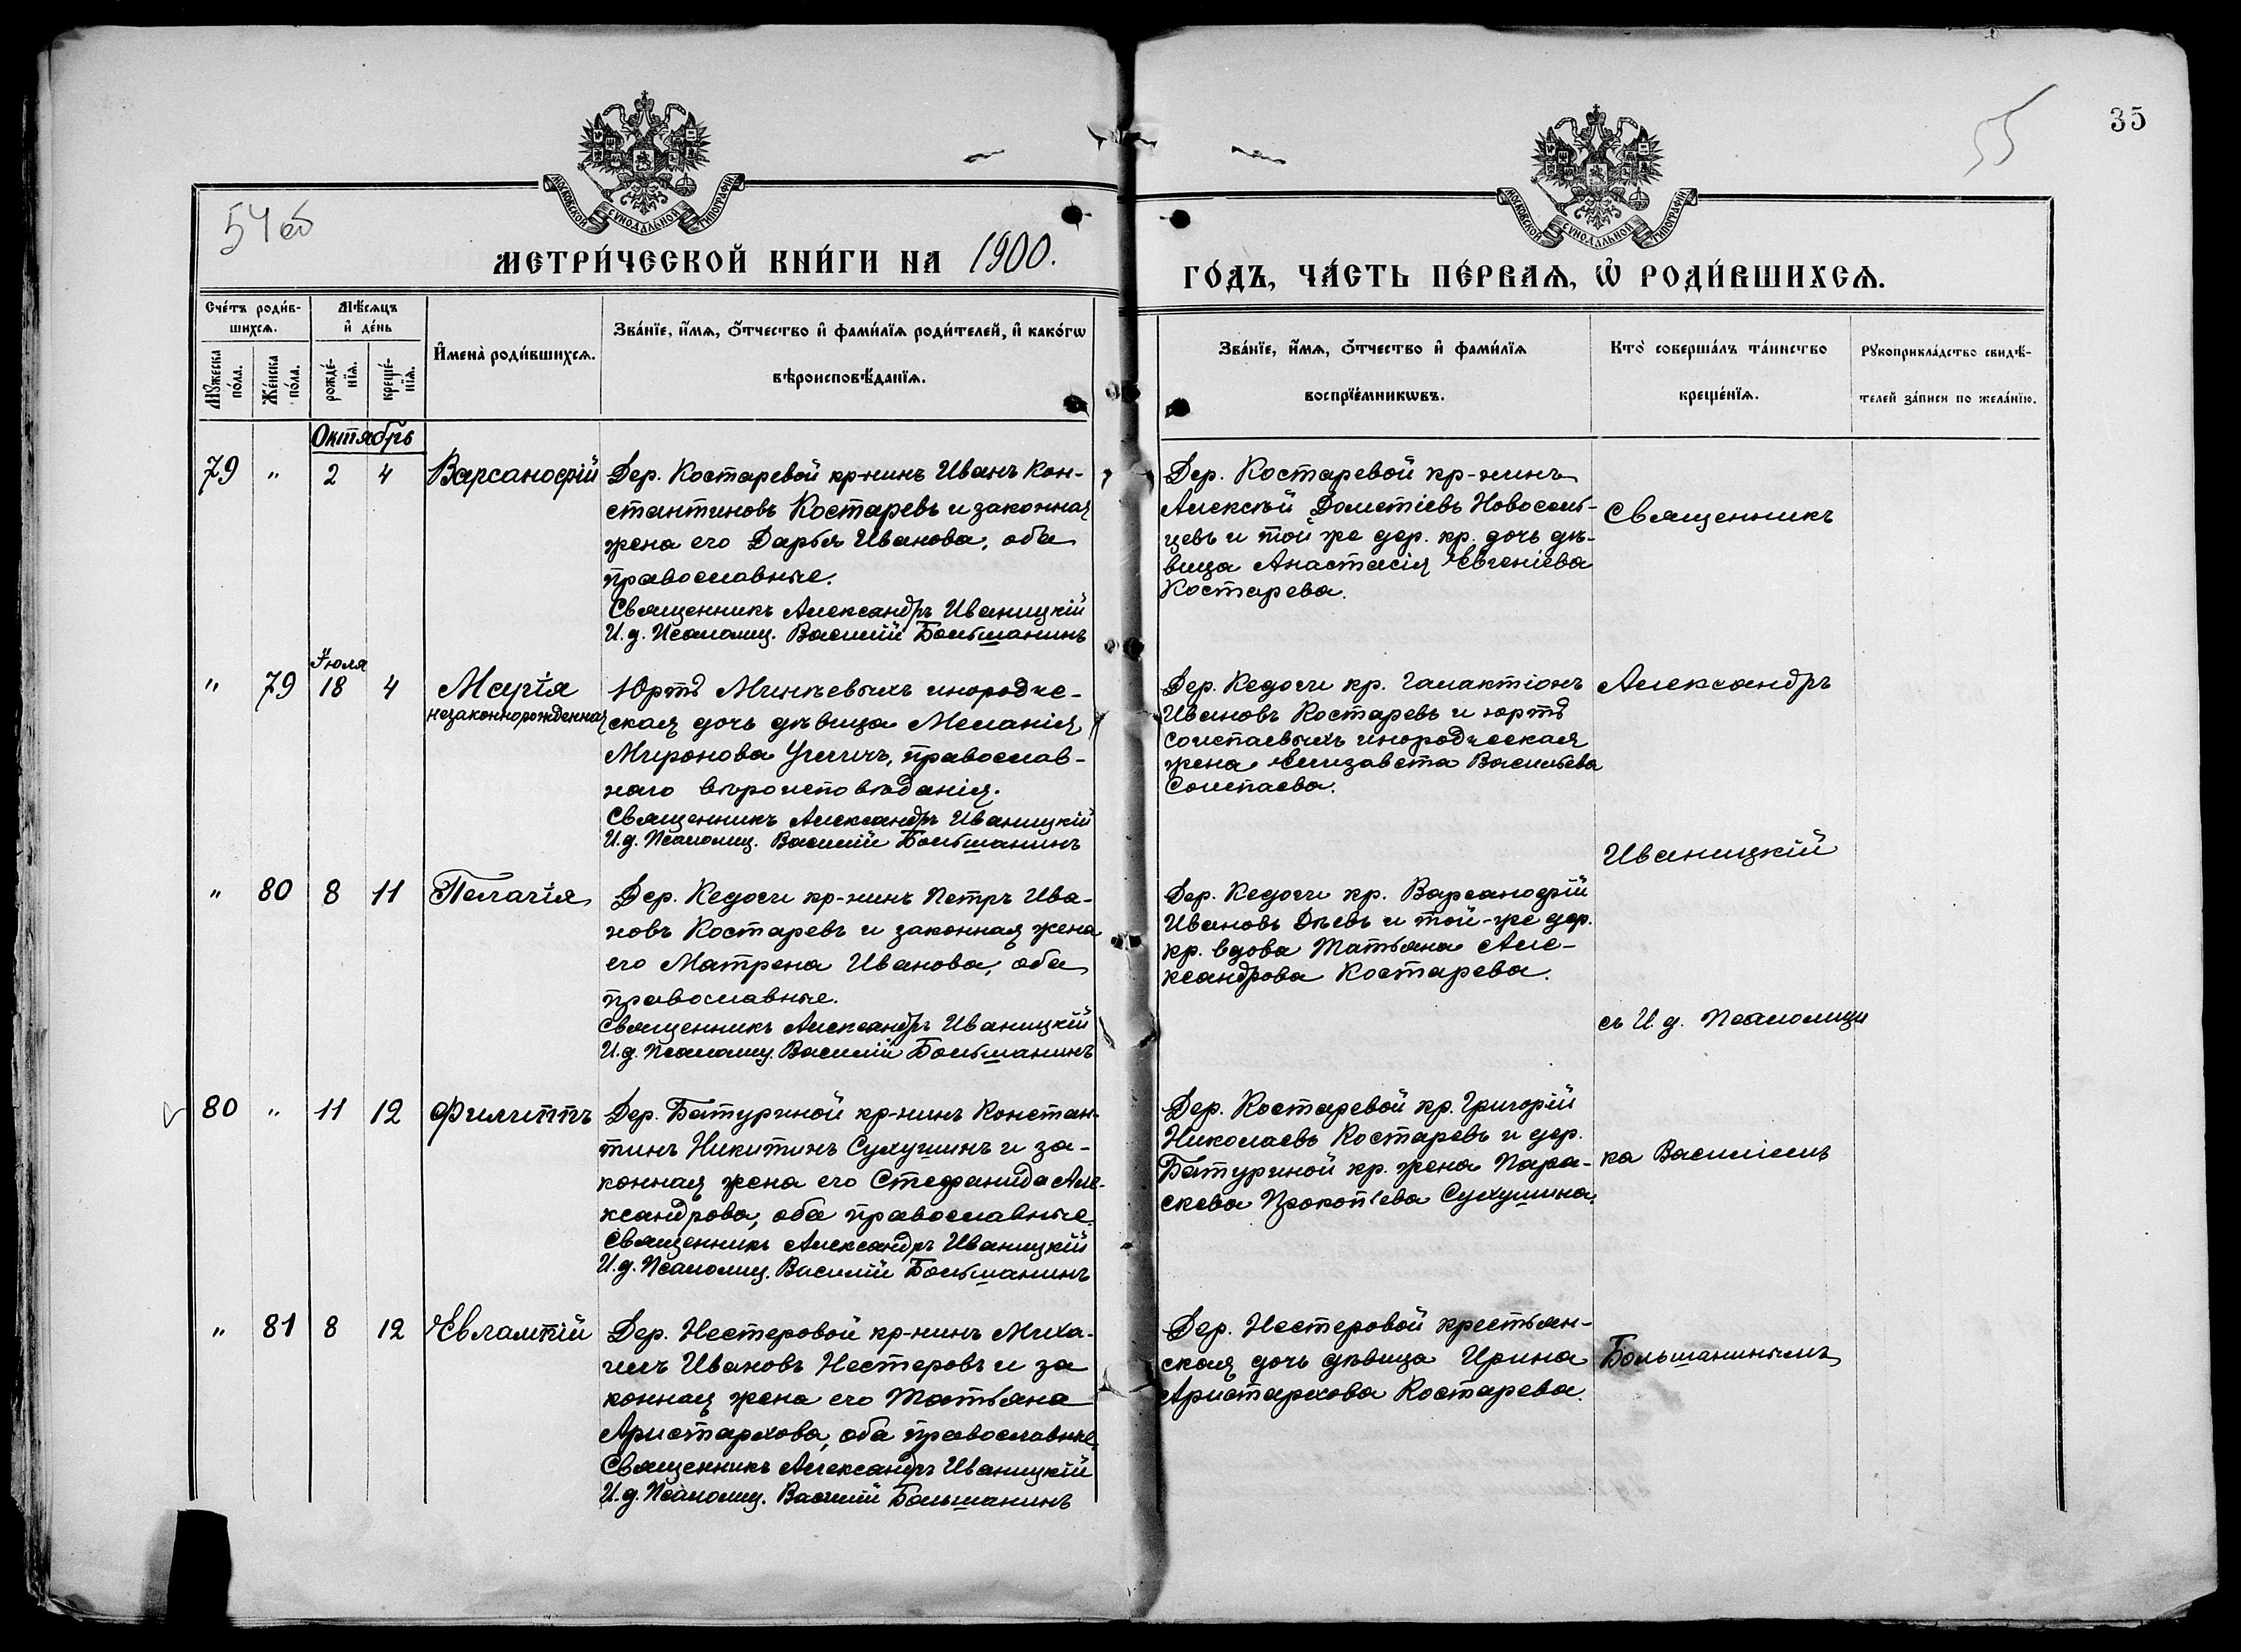 35
55
54об
МОСКОВСКОЙ СУНОДАЛЬНОЙ ТИПОГРАФІИ
МОСКОВСКОЙ СУНОДАЛЬНОЙ ТИПОГРАФІИ
МЕТРИ́ЧЕСКОЙ КНИ́ГИ НА 1900.
ГО́ДЪ, ЧА́СТЬ ПЕ́РВАѦ, Ѡ҆ РОДИ́ВШИХСѦ.
Сче́тъ роди́в-
шихсѧ.
Мꙋ́жеска
по́ла.
Же́нска
по́ла.
Мѣ́сѧцъ
и҆ де́нь
рожде́-
нїѧ.
креще́-
нїѧ.
И҆мена̀ роди́вшихсѧ.
Зва́нїе, и҆́мѧ, ѻ҆́тчество и҆ фами́лїѧ роди́телей, и҆ како́гѡ
вѣроисповѣ́данїѧ.
Зва́нїе, и҆́мѧ, ѻ҆́тчество и҆ фами́лїѧ
воспрїе́мникѡвъ.
Кто̀ соверша́лъ та́инство
креще́нїѧ.
Рꙋкоприкла́дство свидѣ́-
телей за́писи по жела́нїю.
Октябрь
79 " 2 4 Варсанофій
Дер. Костаревой кр-нинъ Иванъ Кон-
стантиновъ Костаревъ и законная
жена его Дарья Иванова, оба
православные.
Священникъ Александръ Иваницкій
И.д. Псаломщ. Василій Большанинъ
Дер. Костаревой кр-нинъ
Алексѣй Дометіевъ Новосель-
цевъ и той же дер. кр. дочь дѣ-
вица Анастасія Евгеніева
Костарева.
Священникъ
Іюля
" 79 18 4 Марія
незаконнорожденная
Юртъ Минѣевыхъ инородче-
ская дочь дѣвица Меланія
Миронова Угличъ, православ-
наго вѣроисповѣданія.
Священникъ Александръ Иваницкій
И.д. Псаломщ. Василій Большанинъ
Дер. Кедоси кр. Галактіонъ
Ивановъ Костаревъ и юртъ
Соиспаевыхъ инородческая
жена Елизавета Васильева
Соиспаева.
Александръ
Иваницкій
" 80 8 11 Пелагія
Дер. Кедоси кр-нинъ Петръ Ива-
новъ Костаревъ и законная жена
его Матрена Иванова, оба
православные.
Священникъ Александръ Иваницкій
И.д. Псаломщ. Василій Большанинъ
Дер. Кедоси кр. Варсанофій
Ивановъ Дѣевъ и той-же дер.
кр. вдова Татьяна Але-
ксандрова Костарева.
съ И.д. Псаломщи
80 " 11 12 Филиппъ
Дер. Батуриной кр-нинъ Констан-
тинъ Никитинъ Сухушинъ и за-
конная жена его Стефанида Але-
ксандрова, оба православные.
Священникъ Александръ Иваницкій
И.д. Псаломщ. Василій Большанинъ
Дер. Костаревой кр. Григорій
Николаевъ Костаревъ и дер.
Батуриной кр. жена Пара-
скева Прокопіева Сухушина.
ка Василіемъ
" 81 8 12 Евлампій
Дер. Нестеровой кр-нинъ Миха-
илъ Ивановъ Нестеровъ и за
конная жена его Татьяна
Аристархова, оба православные,
Священникъ Александръ Иваницкій
И.д. Псаломщ. Василій Большанинъ
Дер. Нестеровой крестьян-
ская дочь дѣвица Ирина
Аристархова Костарева.
Большанинымъ